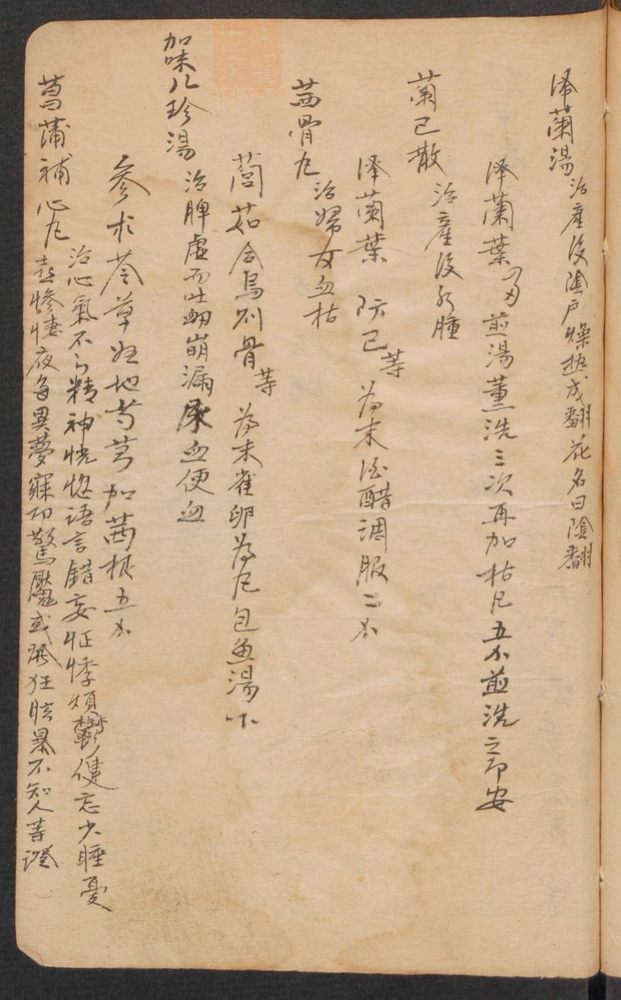 泽蘭湯 治產後陰户燥熱成翻花名曰陰翻
泽蘭葉 煎湯薰洗三次再加枯凡五分煎洗之即安
蘭已散 治產後水腫
泽蘭葉 防已 等 為末酒醋調服二分
茜骨丸 治婦女血枯
茼茹合烏则骨等 為末雀卵為丸包魚湯下
加味八珍湯 治脾虛而吐衄崩漏尿血便血
參朮苓草 地芍芎加茜根五分
菖蒲補心丸 治心氣不 精神恍惚語言錯妄怔悸煩鬱健忘少睡憂
慘悽夜多異夢寐即驚魘或 狂眩暴不知人等證